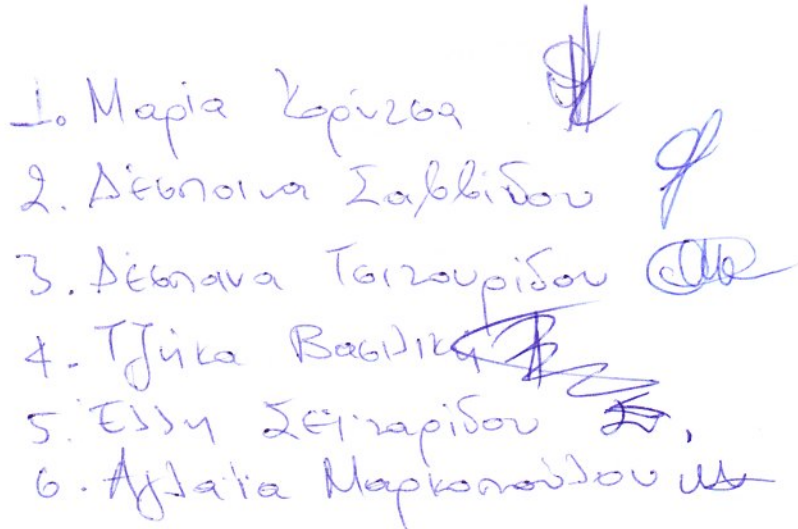 1. Μαρία Κορύτσα
2. Δέσποινα Σαββίδου
3. Δέσποινα Τσιτουρίδου
4. Τζήκα Βασιλική
5. Έλλη Σεϊταρίδου
6. Αγλαΐα Μαρκοπούλου